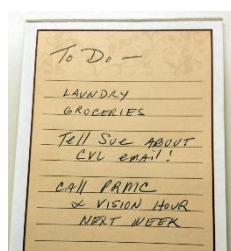 To Do —
LAUNDRY
GROCERIES
Tell Sue ABOUT
CVC email!
CALL PRMC
& VISION HOUR
NEXT WEEK